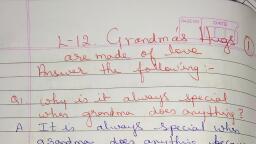 L-12 Grandma's Hugs
are made of love
Answer the following:-
Q1 Why is it always special
when grandma does anything?
A It is always special when
grandma does anything